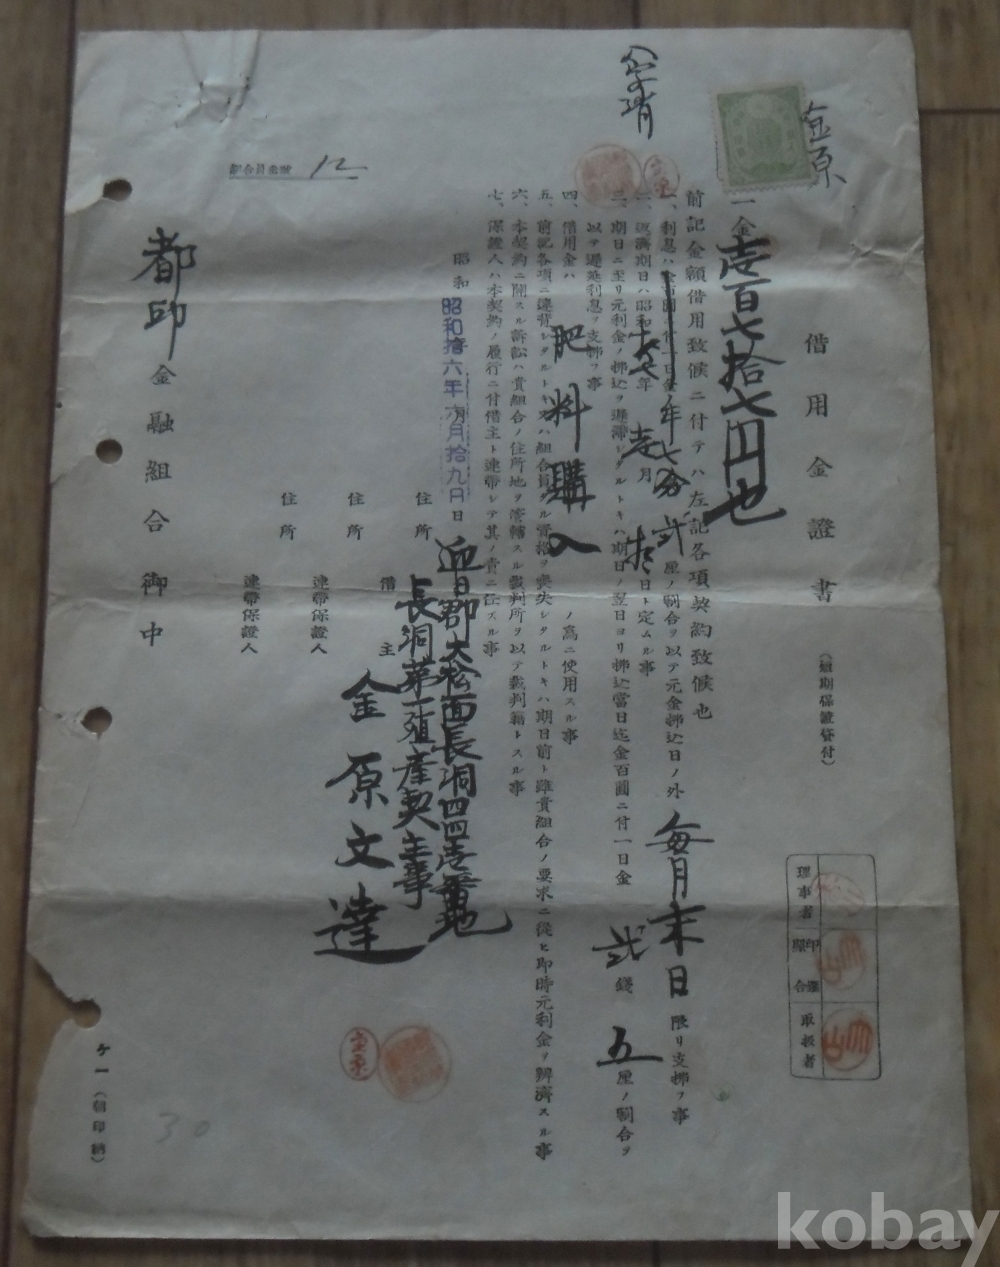 借用金證書
(短期保證貸付)
一金壱百七拾七円也
前記金額借用致候ニ付テハ左記各項契約致候也
一、利息ハ金百圓ニ付一日金 年七分弐厘ノ割合ヲ以テ元金拂込日ノ外毎月末日限リ支拂フ事
二、返濟期日ハ昭和拾七年壱月 日ト定ムル事
三、期日ニ至リ元利金ノ拂込ヲ遲滯シタルトキハ期日ノ翌日ヨリ拂込當日迄金百圓ニ付一日金弐錢五厘ノ割合ヲ
以テ遲延利息ヲ支拂フ事
四、借用金ハ肥料購入ノ爲ニ使用スル事
五、前記各項ニ違背シタルトキ又ハ組合員タル資格ヲ喪失シタルトキハ期日前ト雖貴組合ノ要求ニ從ヒ卽時元利金ヲ辨濟スル事
六、本契約ニ關スル訴訟ハ貴組合ノ住所地ヲ管轄スル裁判所ヲ以テ裁判籍トスル事
七、保證人ハ本契約ノ履行ニ付借主ト連帶シテ其ノ責ニ任スル事
昭和 昭和拾六年 月拾九日 日
住所 迎日郡大松面長洞四四壱番地
長洞第一殖産契主事
借主 金原文達
住所
連帶保證人
住所
連帶保證人
都邱金融組合御中
組合員番號 12
理事者
印鑑照合
取扱者
ケー(朝印納)
30
kobay